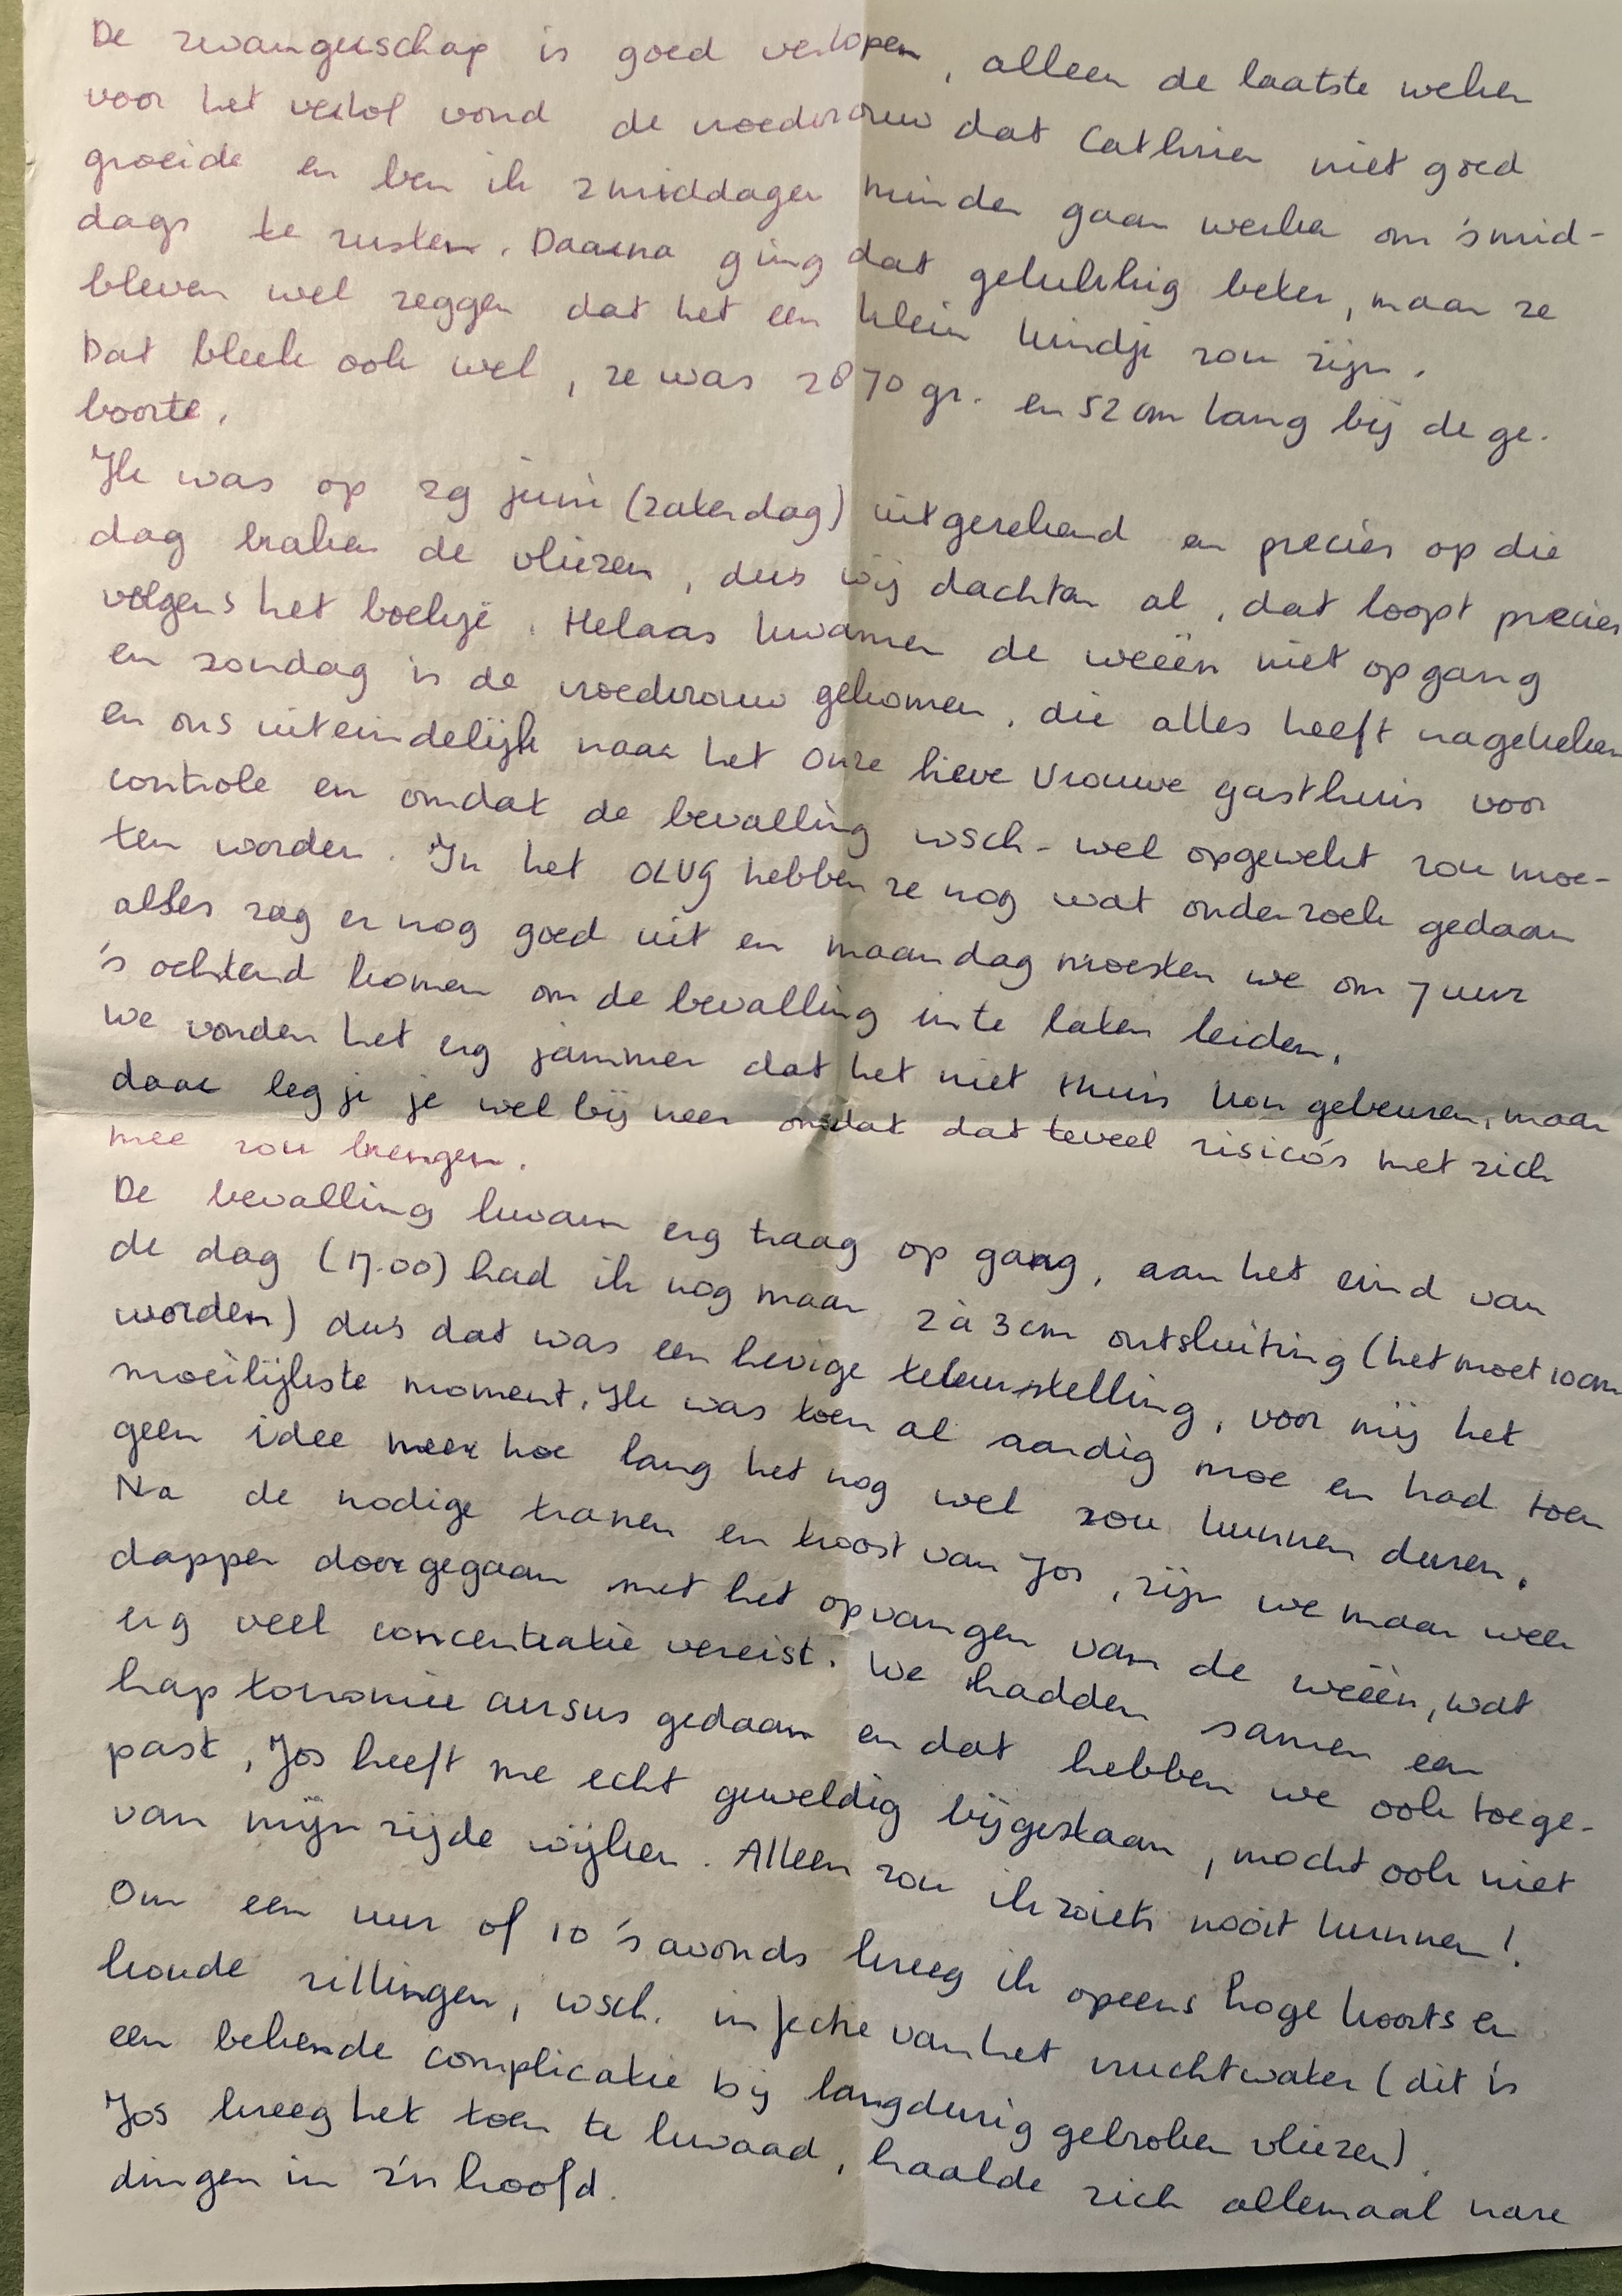 De zwangerschap is goed verlopen, alleen de laatste weken
voor het verlof vond de vroedvrouw dat Cathrien niet goed
groeide en ben ik 2 middagen minder gaan werken om 's mid-
dags te rusten. Daarna ging dat gelukkig beter, maar ze
bleven wel zeggen dat het een klein kindje zou zijn.
Dat bleek ook wel, ze was 2870 gr. en 52 cm lang bij de ge-
boorte.
Ik was op 29 juni (zaterdag) uitgerekend en precies op die
dag braken de vliezen, dus wij dachten al, dat loopt precies
volgens het boekje. Helaas kwamen de weeën niet op gang
en zondag is de vroedvrouw gekomen, die alles heeft nagekeken
en ons uiteindelijk naar het Onze Lieve Vrouwe gasthuis voor
controle en omdat de bevalling wsch. wel opgewekt zou moe-
ten worden. In het OLVG hebben ze nog wat onderzoek gedaan
alles zag er nog goed uit en maandag moesten we om 7 uur
's ochtend komen om de bevalling in te laten leiden.
We vonden het erg jammer dat het niet thuis kon gebeuren, maar
daar leg je je wel bij neer omdat dat teveel risico's met zich
mee zou brengen.
De bevalling kwam erg traag op gang, aan het eind van
de dag (17.00) had ik nog maar 2 à 3 cm ontsluiting (het moet 10 cm
worden) dus dat was een hevige teleurstelling, voor mij het
moeilijkste moment. Ik was toen al aardig moe en had toen
geen idee meer hoe lang het nog wel zou kunnen duren.
Na de nodige tranen en troost van Jos, zijn we maar weer
dapper doorgegaan met het opvangen van de weeën, wat
erg veel concentratie vereist. We hadden samen een
haptonomie cursus gedaan en dat hebben we ook toege-
past, Jos heeft me echt geweldig bijgestaan, mocht ook niet
van mijn zijde wijken. Alleen zou ik zoiets nooit kunnen!
Om een uur of 10 's avonds kreeg ik opeens hoge koorts en
koude rillingen, wsch. infectie van het vruchtwater (dit is
een bekende complicatie bij langdurig gebroken vliezen).
Jos kreeg het toen te kwaad, haalde zich allemaal nare
dingen in z'n hoofd.